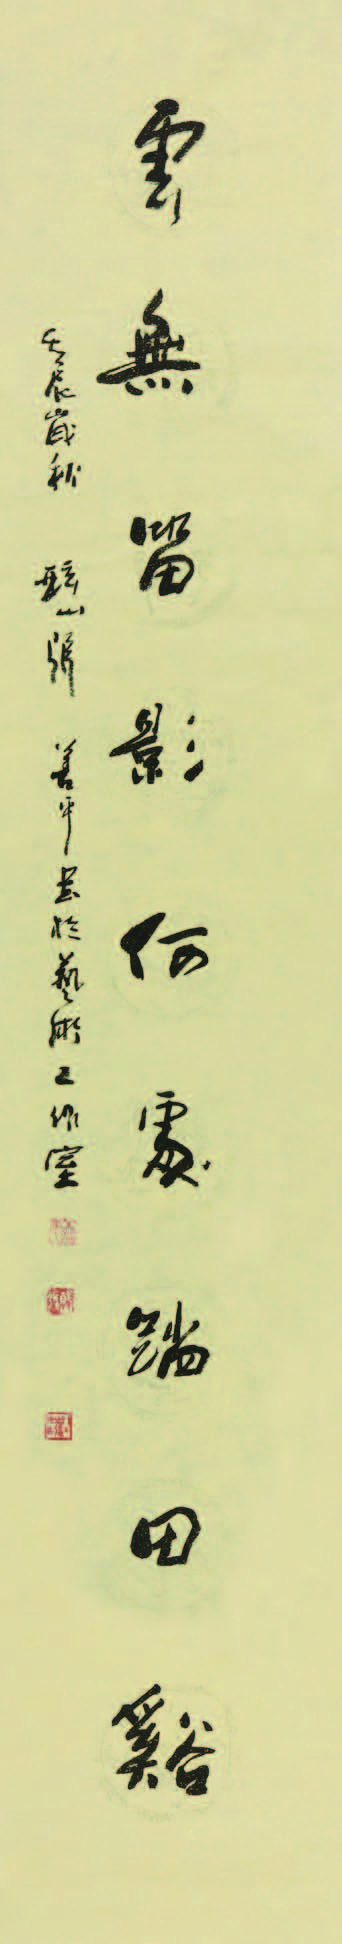 雲無留影何處踏田谿
壬辰歲秋 張善平書於藝術工作室